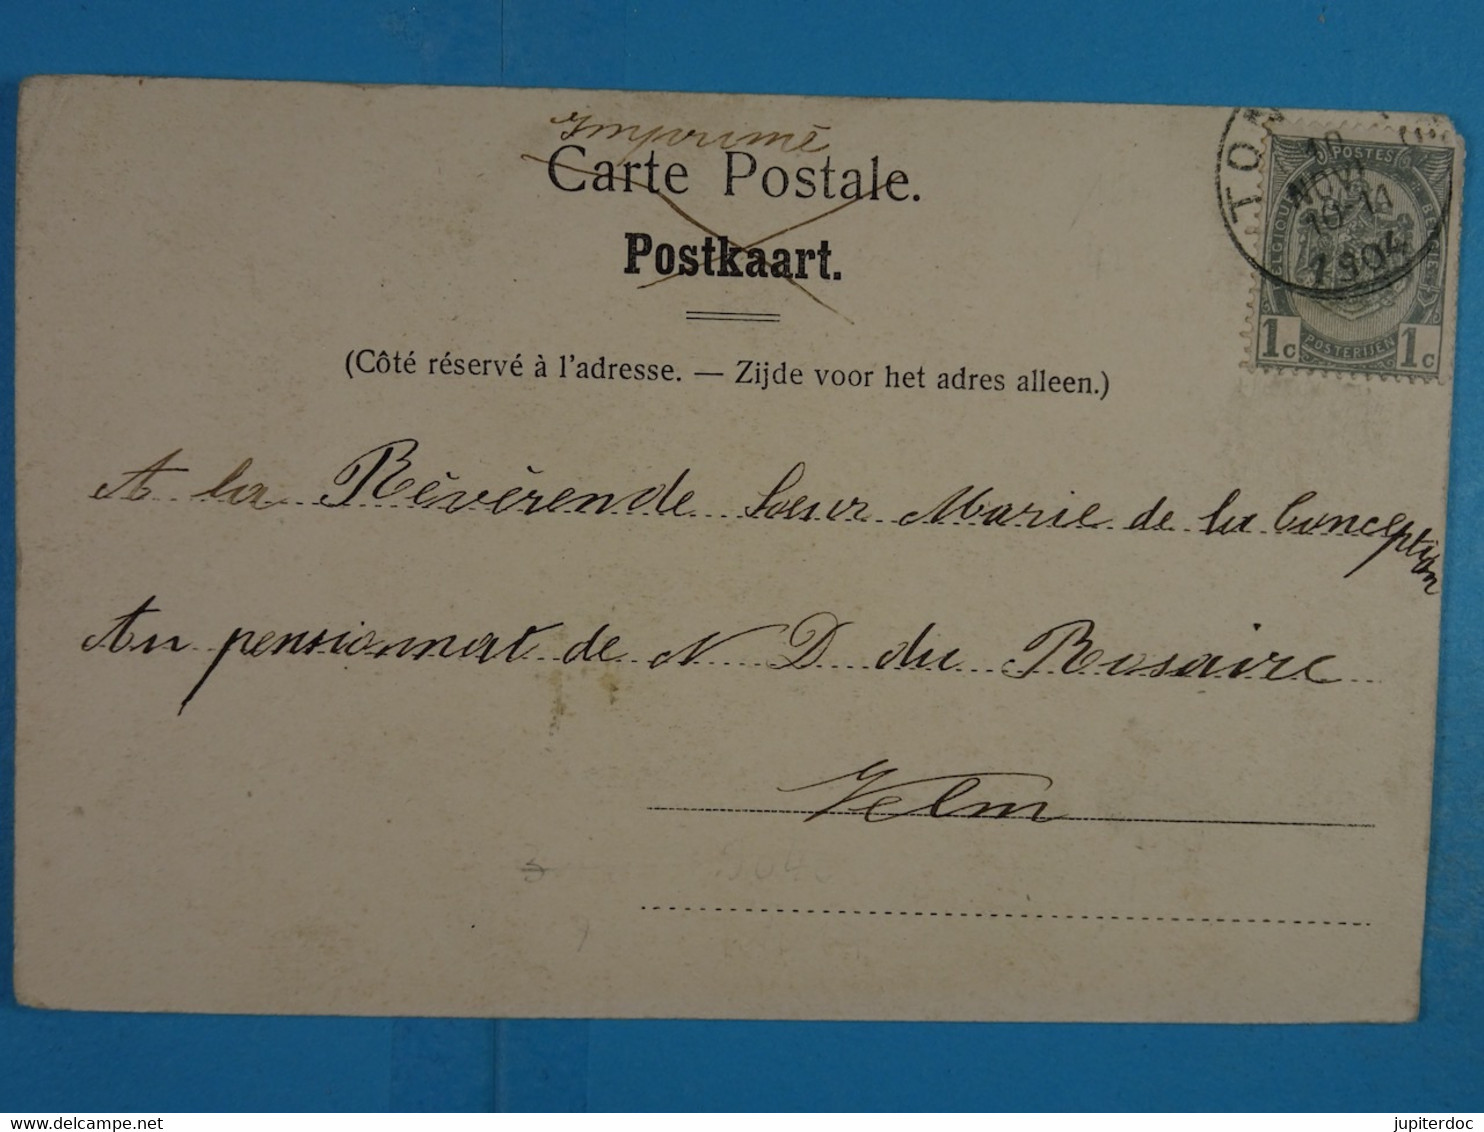 Imprimé
Carte Postale.
Postkaart.
(Côté réservé à l'adresse. — Zijde voor het adres alleen.)
TON
10
NOV
10-11
1904
POSTES
BELGIQUE
BELGIË
1c POSTERIJEN 1c
A la Révérende Soeur Marie de la Conception
Au pensionnat de N D du Rosaire
Velm
delcampe.net
jupiterdoc